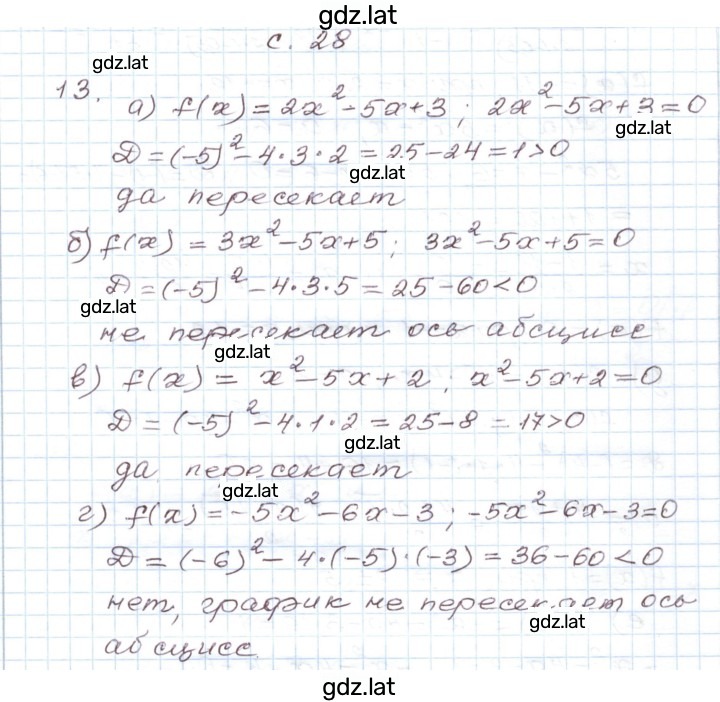 gdz.lat
с. 28
gdz.lat
13. а) f(x) = 2x² - 5x + 3 ; 2x² - 5x + 3 = 0
gdz.lat
D = (-5)² - 4 · 3 · 2 = 25 - 24 = 1 > 0
gdz.lat
да пересекает
б) f(x) = 3x² - 5x + 5 ; 3x² - 5x + 5 = 0
D = (-5)² - 4 · 3 · 5 = 25 - 60 < 0
gdz.lat
не пересекает ось абсцисс
gdz.lat
в) f(x) = x² - 5x + 2 ; x² - 5x + 2 = 0
D = (-5)² - 4 · 1 · 2 = 25 - 8 = 17 > 0
gdz.lat
да пересекает
gdz.lat
г) f(x) = -5x² - 6x - 3 ; -5x² - 6x - 3 = 0
D = (-6)² - 4 · (-5) · (-3) = 36 - 60 < 0
нет, график не пересекает ось
gdz.lat
абсцисс.
gdz.lat